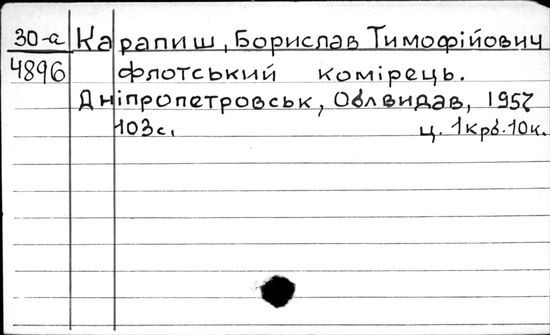 30-а Карапиш, Борислав Тимофійович
4896 флотський комірець.
Дніпропетровськ, Облвидав, 1957
103с. ц. 1крб.10к.